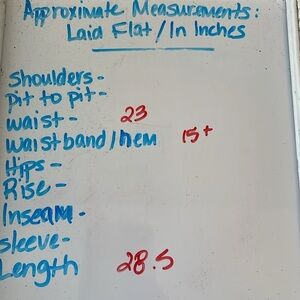 Approximate Measurements:
Laid Flat / In Inches
Shoulders -
pit to pit -
waist - 23
waistband/hem 15+
Hips -
Rise -
Inseam -
sleeve -
Length 28.5